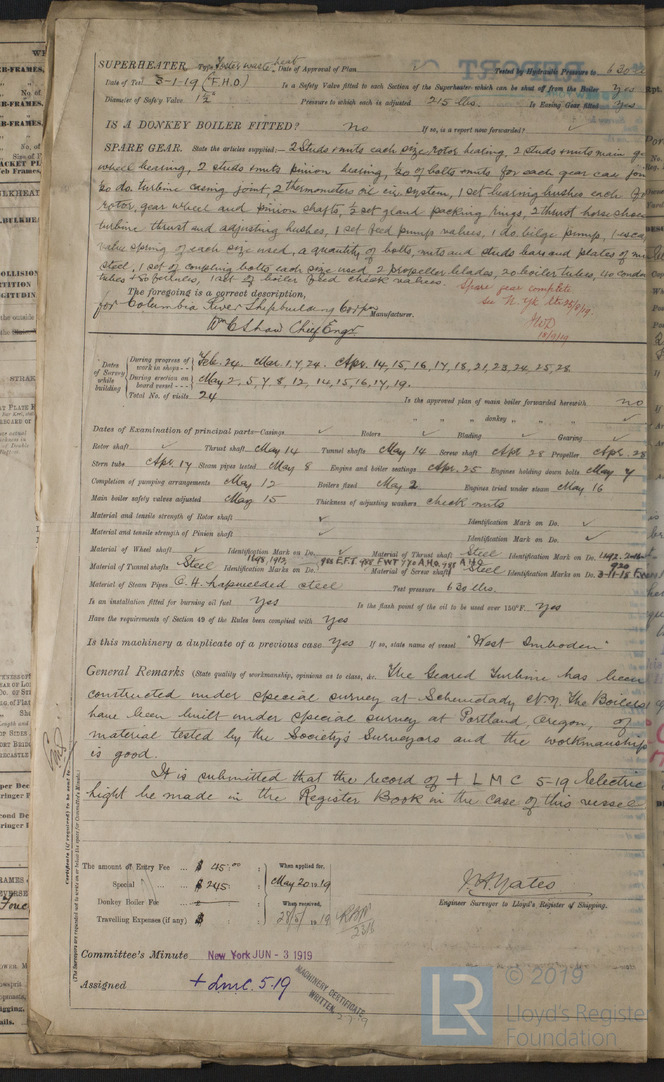 SUPERHEATER. Type Foster waste heat Date of Approval of Plan Tested by Hydraulic Pressure to 630
Date of Test 3-1-19 (F.H.O.) Is a Safety Valve fitted to each Section of the Superheater which can be shut off from the Boiler Yes
Diameter of Safety Valve 1½" Pressure to which each is adjusted 215 lbs. Is Easing Gear fitted Yes
IS A DONKEY BOILER FITTED? no If so, is a report now forwarded?
SPARE GEAR. State the articles supplied:— 2 Studs & nuts each size rotor bearing, 2 studs & nuts main
wheel bearing, 2 studs & nuts pinion bearing, 1/20 of bolts & nuts for each gear case
1/20 do. turbine casing joint 2 thermometers oil cir. system, 1 set bearing bushes each for
rotor, gear wheel and pinion shafts, ½ set gland packing rings, 2 thrust horse shoes
turbine thrust and adjusting bushes, 1 set feed pump valves, 1 do. bilge pump, 1
valve spring of each size used, a quantity of bolts, nuts and studs bars and plates of
steel, 1 set of coupling bolts each size used, 2 propeller blades, 20 boiler tubes, 40
tubes & 80 ferrules, 1 set of boiler feed check valves.
Spare gear complete
see N. Yk ltr
The foregoing is a correct description,
for Columbia River Shipbuilding Corpn Manufacturer.
Wm C Shaw Chief Engr
18/9/19
Dates of Survey while building
During progress of work in shops - - Feb. 24, Mar. 1, 7, 24. Apr. 14, 15, 16, 17, 18, 21, 23, 24, 25, 28
During erection on board vessel - - - May 2, 5, 7, 8, 12, 14, 15, 16, 17, 19.
Total No. of visits 24
Is the approved plan of main boiler forwarded herewith no
" " " donkey " "
Dates of Examination of principal parts—Casings Rotors Blading Gearing
Rotor shaft Thrust shaft May 14 Tunnel shafts May 14 Screw shaft Apr. 28 Propeller Apr. 28
Stern tube Apr. 17 Steam pipes tested May 8 Engine and boiler seatings Apr. 25 Engines holding down bolts May 7
Completion of pumping arrangements May 12 Boilers fixed May 2 Engines tried under steam May 16
Main boiler safety valves adjusted May 15 Thickness of adjusting washers check nuts
Material and tensile strength of Rotor shaft Identification Mark on Do.
Material and tensile strength of Pinion shaft Identification Mark on Do.
Material of Wheel shaft Identification Mark on Do. Material of Thrust shaft Steel Identification Mark on Do. 1892
Material of Tunnel shafts Steel Identification Marks on Do. Material of Screw shaft Steel Identification Marks on Do.
Material of Steam Pipes O.H. lapwelded steel Test pressure 630 lbs.
Is an installation fitted for burning oil fuel Yes Is the flash point of the oil to be used over 150°F. Yes
Have the requirements of Section 49 of the Rules been complied with Yes
Is this machinery a duplicate of a previous case Yes If so, state name of vessel "West Imboden"
General Remarks (State quality of workmanship, opinions as to class, &c. The Geared Turbine has been
constructed under special survey at Schenectady N.Y. The Boilers
have been built under special survey at Portland, Oregon, of
material tested by the Society's Surveyors and the workmanship
is good.
It is submitted that the record of + L M C 5-19 Electric
light be made in the Register Book in the case of this vessel
Certificate (if required) to be sent to
(The Surveyors are requested not to write on or below the space for Committee's Minute.)
The amount of Entry Fee ... $ 45.00 : When applied for,
Special ... $ 245 : May 20 1919
Donkey Boiler Fee ... : When received,
Travelling Expenses (if any) $ : 28/5/1919
Engineer Surveyor to Lloyd's Register of Shipping.
Committee's Minute New York JUN - 3 1919
Assigned + LMC. 5.19
MACHINERY CERTIFICATE
WRITTEN
LR
© 2019
Lloyd's Register
Foundation